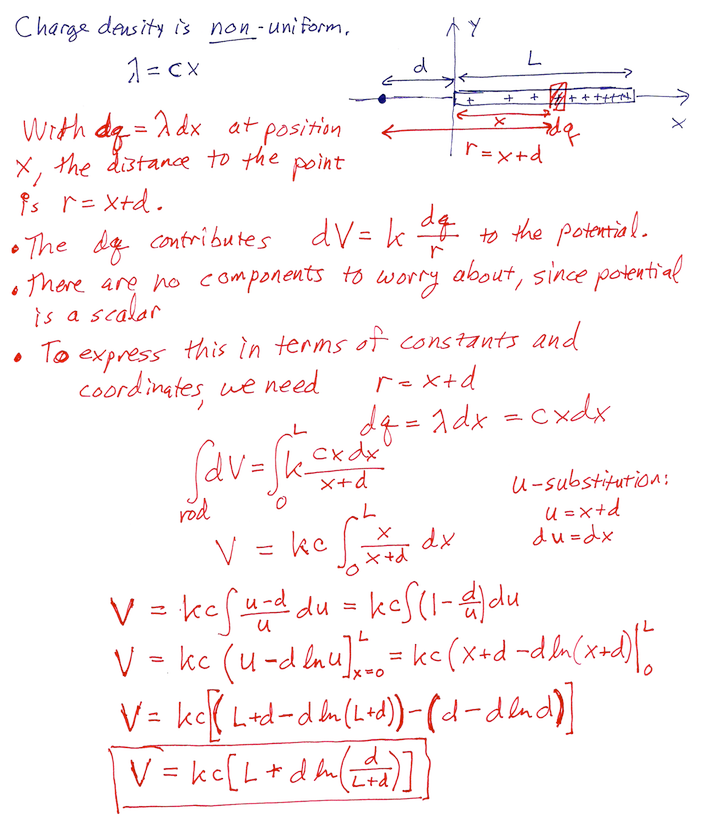 Charge density is non-uniform.
λ = cx
Y
d
L
+ + + + + + + + + +
x
dq
x
r = x+d
With dq = λ dx at position
x, the distance to the point
is r = x+d.
• The dq contributes dV = k dq/r to the potential.
• There are no components to worry about, since potential
is a scalar
• To express this in terms of constants and
coordinates, we need r = x+d
dq = λ dx = c x dx
∫_rod dV = ∫_0^L k c x dx/(x+d)
u-substitution:
u = x+d
du = dx
V = kc ∫_0^L x/(x+d) dx
V = kc ∫ (u-d)/u du = kc ∫ (1 - d/u) du
V = kc (u - d ln u]_{x=0}^L = kc (x+d - d ln(x+d)|_0^L
V = kc[(L+d - d ln(L+d)) - (d - d ln d)]
V = kc[L + d ln(d/(L+d))]